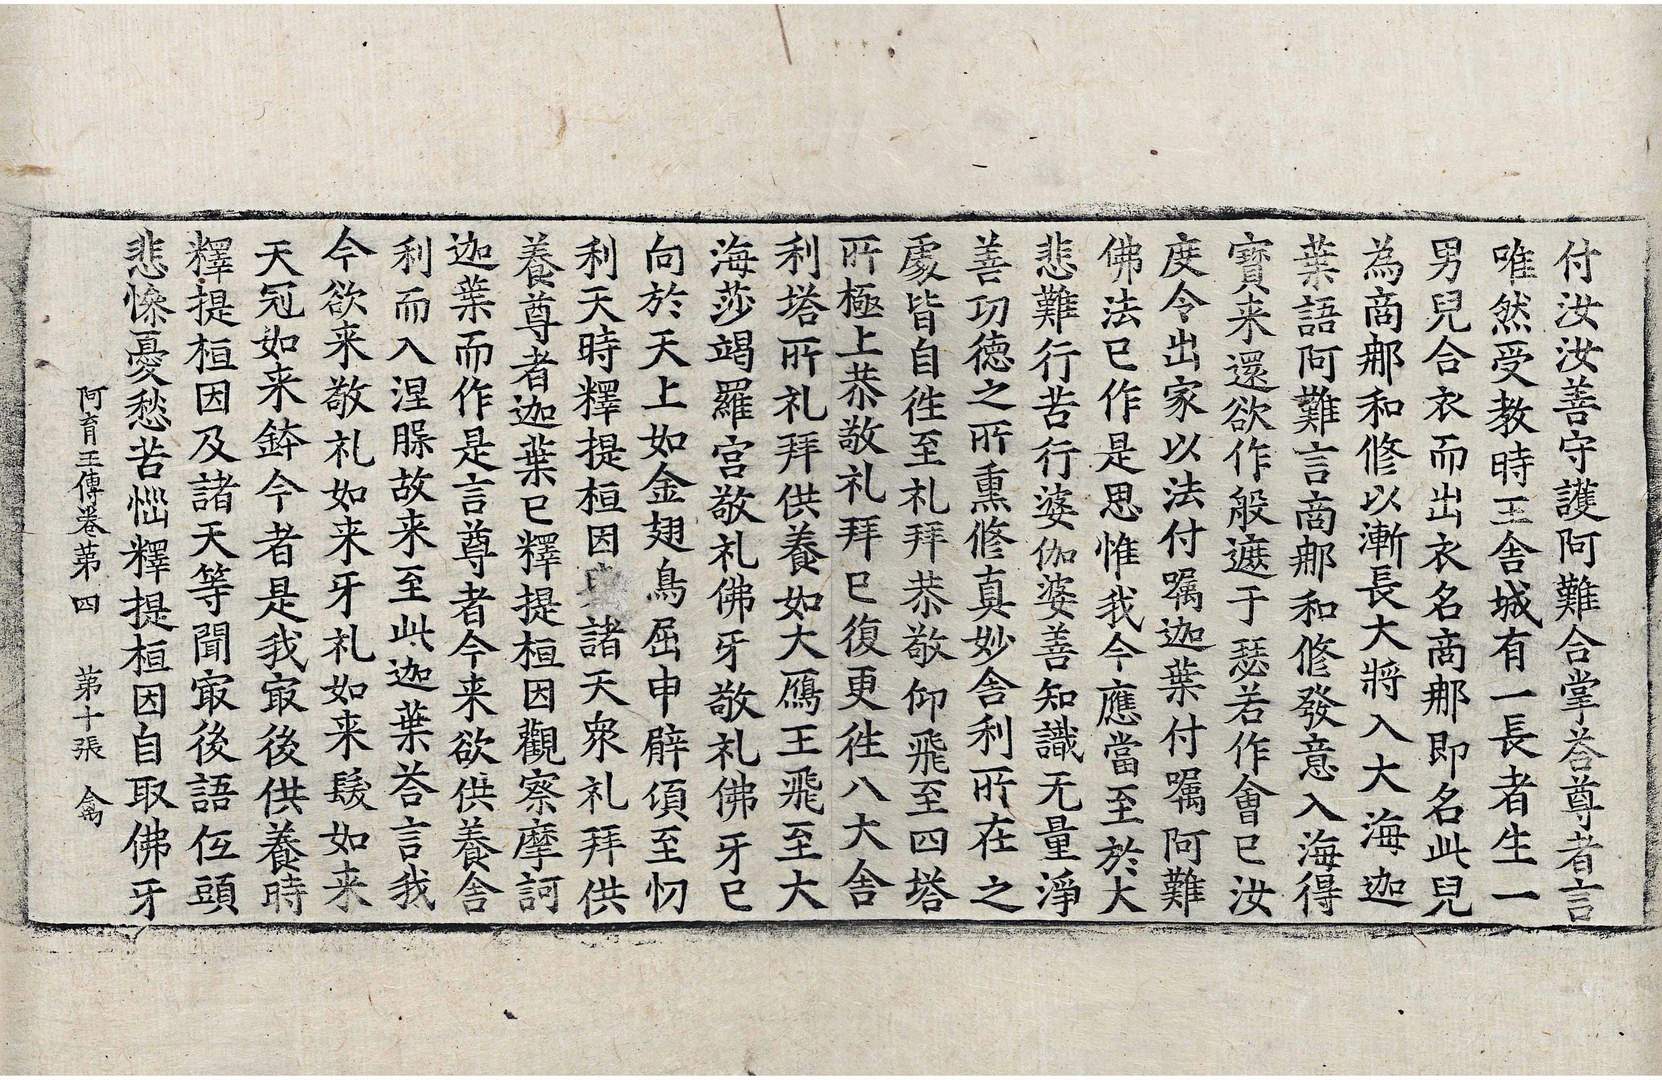 付汝汝善守護阿難合掌荅尊者言
唯然受教時王舎城有一長者生一
男兒合衣而出衣名商𨚗即名此兒
為商𨚗和修以漸長大將入大海迦
葉語阿難言商𨚗和修發意入海得
寶来還欲作般遮于瑟若作會已汝
度令出家以法付嘱迦葉付嘱阿難
佛法已作是思惟我今應當至於大
悲難行苦行婆伽婆善知識无量淨
善功徳之所熏修真妙舎利所在之
處皆自徃至礼拜恭敬仰飛至四塔
所極上恭敬礼拜已復更徃八大舎
利塔所礼拜供養如大鴈王飛至大
海莎竭羅宫敬礼佛牙敬礼佛牙已
向於天上如金翅鳥屈申臂傾至忉
利天時釋提桓因諸天衆礼拜供
養尊者迦葉已釋提桓因觀察摩訶
迦葉而作是言尊者今来欲供養舎
利而入涅槃故来至此迦葉荅言我
今欲来敬礼如来牙礼如来髮如来
天冠如来鉢今者是我㝡後供養時
釋提桓因及諸天等聞㝡後語伍頭
悲慘憂愁苦惱釋提桓因自取佛牙
阿育王傳卷苐四 苐十張 禽